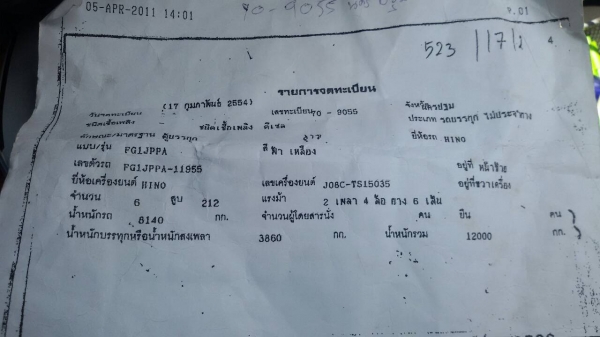 05-APR-2011 14:01 70-9055 P.01
523 17/2 4
รายการจดทะเบียน
วันจดทะเบียน (17 กุมภาพันธ์ 2554) เลขทะเบียน 70 - 9055 จังหวัด นครปฐม
ชนิดเชื้อเพลิง ดีเซล ประเภท รถบรรทุก ไม่ประจำทาง
ลักษณะ/มาตรฐาน ตู้บรรทุก ยี่ห้อรถ HINO
แบบ/รุ่น FG1JPPA สี ฟ้า เหลือง
เลขตัวรถ FG1JPPA-11955 อยู่ที่ หน้าซ้าย
ยี่ห้อเครื่องยนต์ HINO เลขเครื่องยนต์ J08C-TS15035 อยู่ที่ขวาเครื่อง
จำนวน 6 สูบ 212 แรงม้า 2 เพลา 4 ล้อ ยาง 6 เส้น
น้ำหนักรถ 8140 กก. จำนวนผู้โดยสารนั่ง คน ยืน คน
น้ำหนักบรรทุกหรือน้ำหนักลงเพลา 3860 กก. น้ำหนักรวม 12000 กก.